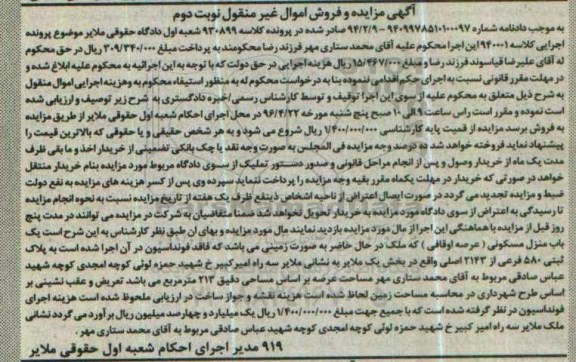 آگهی مزایده و فروش اموال غیر منقول نوبت دوم
به موجب دادنامه شماره ۹۴۰۹۹۷۸۵۱۰۱۰۰۰۹۷ - ۹۴/۲/۹ صادر شده در پرونده کلاسه ۹۳۰۸۹۹ شعبه اول دادگاه حقوقی ملایر موضوع پرونده
اجرایی کلاسه ۹۴۰۰۰۱ این اجرا محکوم علیه آقای محمد ستاری مهر فرزند رضا محکومند به پرداخت مبلغ ۳۰۹/۳۴۰/۰۰۰ ریال در حق محکوم
له آقای علیرضا قیاسوند فرزند رضا و مبلغ ۱۵/۴۶۷/۰۰۰ ریال هزینه اجرایی در حق دولت که با توجه به این اجرائیه به محکوم علیه ابلاغ شده و
در مهلت مقرر قانونی نسبت به اجرای حکم اقدامی ننموده بنا به درخواست محکوم له به منظور استیفاء محکوم به وهزینه اجرایی اموال منقول
به شرح ذیل متعلق به محکوم علیه از سوی این اجرا توقیف و توسط کارشناس رسمی/خبره دادگستری به شرح زیر توصیف و ارزیابی شده
است نموده و مقرر است راس ساعت ۹ الی ۱۰ صبح پنج شنبه مورخه ۹۶/۴/۲۲ در محل اجرای احکام شعبه اول حقوقی ملایر از طریق مزایده
به فروش برسد مزایده از قمیت پایه کارشناسی ۱/۴۰۰/۰۰۰/۰۰۰ ریال شروع می شود و به هر شخص حقیقی و یا حقوقی که بالاترین قیمت را
پیشنهاد نماید فروخته خواهد شد ده درصد وجه مزایده فی المجلس به صورت وجه نقد یا چک بانکی تضمینی از خریدار اخذ و ما بقی ظرف
مدت یک ماه از خریدار وصول و پس از انجام مراحل قانونی و صدور دستور تملیک از سوی دادگاه مربوط مورد مزایده بنام خریدار منتقل
خواهد در صورتی که خریدار در مهلت یکماه مقرر بقیه وجه مزایده را پرداخت ننماید سپرده وی پس از کسر هزینه های مزایده به نفع دولت
ضبط و مزایده تجدید می گردد در صورت ایصال اعتراض از ناحیه اشخاص ذینفع ظرف یک هفته از تاریخ مزایده نسبت به نحوه انجام مزایده
تا رسیدگی به اعتراض از سوی دادگاه مورد مزایده به خریدار تحویل نخواهد شد ضمنا متقاضیان به شرکت در مزایده می توانند در مدت پنج
روز قبل از مزایده با هماهنگی این اجرا از مال مورد مزایده بازدید نمایند مال مورد مزایده و بهای ان طبق نظر کارشناس به این شرح است یک
باب منزل مسکونی (عرصه اوقافی) که ملک در حال حاضر به صورت زمینی می باشد که فاقد فونداسیون در آن اجرا شده است به پلاک
ثبتی ۵۸۰ فرعی از ۲۱۴۳ اصلی واقع در بخش یک ملایر به نشانی ملایر سه راه امیر کبیر خ شهید حمزه لوئی کوچه امجدی کوچه شهید
عباس صادقی مربوط به آقای محمد ستاری مهر مساحت عرصه بر اساس مساحی دقیق ۲۱۳ مترمربع می باشد تعریض و عقب نشینی بر
اساس طرح شهرداری در محاسبه مساحت زمین لحاظ شده است هزینه نقشه و جواز ساخت در ارزیابی ملحوظ شده است هزینه اجرای
فونداسیون در نظر گرفته شده است که با جمیع جهت مبلغ ۱/۴۰۰/۰۰۰/۰۰۰ ریال یک میلیارد و چهارصد میلیون ریال برآورد می گردد نشانی
ملک ملایر سه راه امیر کبیر خ شهید حمزه لوئی کوچه امجدی کوچه شهید عباس صادقی مربوط به آقای محمد ستاری مهر .
۹۱۹ مدیر اجرای احکام شعبه اول حقوقی ملایر